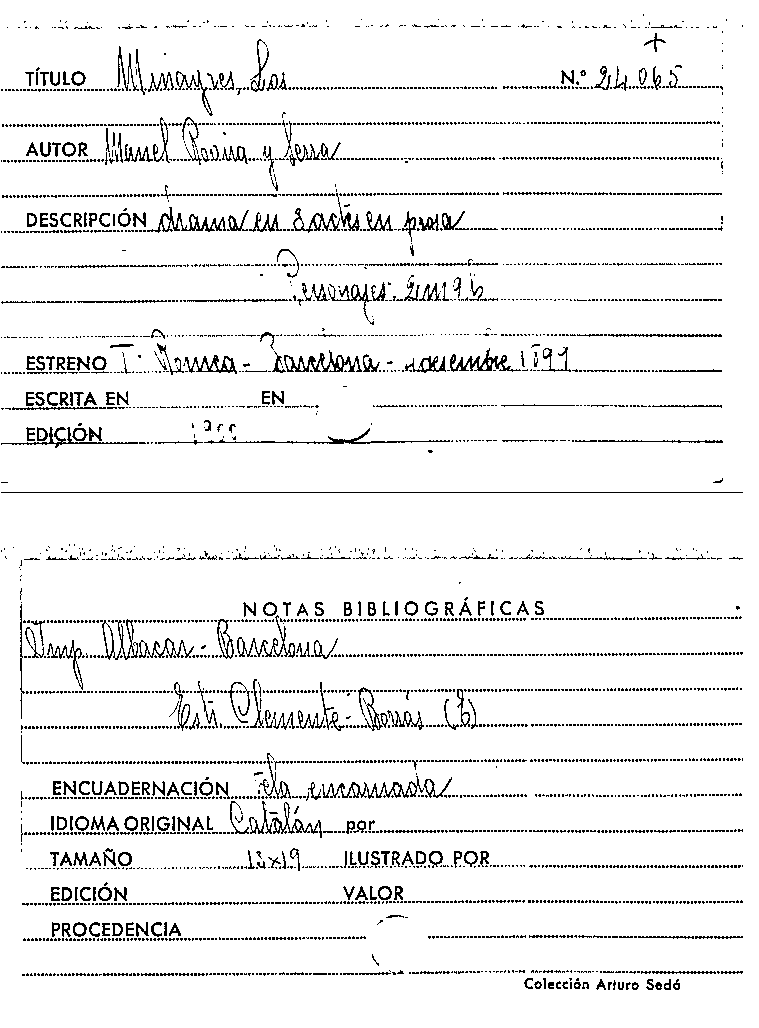 +
TÍTULO Minayres, Los N.º 24065
AUTOR Manel Rovira y Serra
DESCRIPCIÓN drama en 3 actes en prosa
Personajes: 2m 19h
ESTRENO T. Romea - Barcelona - desembre 1899
ESCRITA EN EN
EDICIÓN 1900
NOTAS BIBLIOGRÁFICAS
Imp. Albacar - Barcelona
Estr. Clemente - Borrás (E)
ENCUADERNACIÓN Tela encarnada
IDIOMA ORIGINAL Catalán por
TAMAÑO 13x19 ILUSTRADO POR
EDICIÓN VALOR
PROCEDENCIA
Colección Arturo Sedó